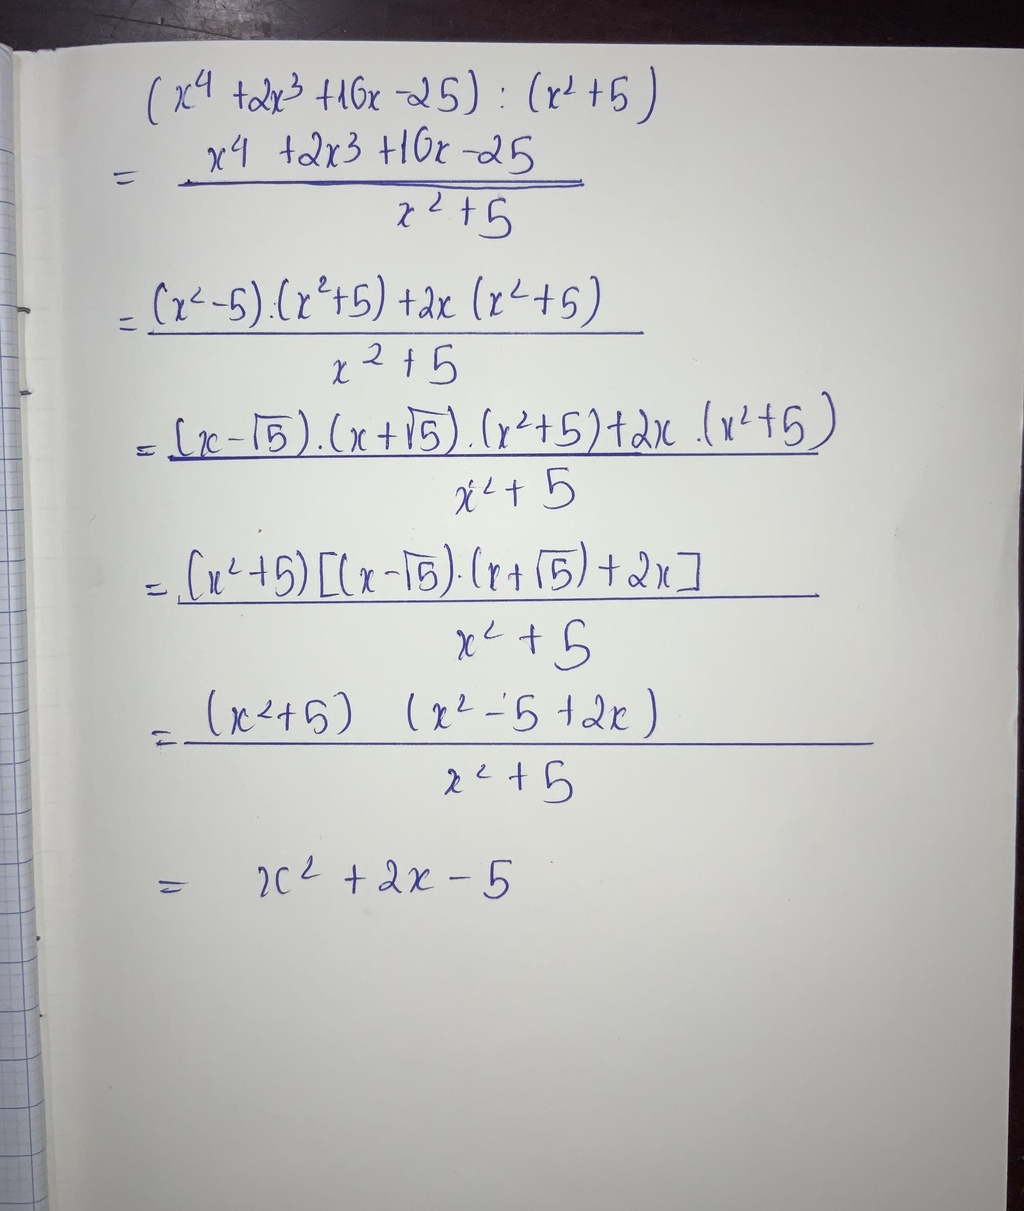 (x⁴ + 2x³ + 10x - 25) : (x² + 5)
= x4 + 2x3 + 10x - 25
x² + 5
= (x² - 5).(x² + 5) + 2x (x² + 5)
x² + 5
= (x - √5).(x + √5).(x² + 5) + 2x .(x² + 5)
x² + 5
= (x² + 5) [(x - √5).(x + √5) + 2x]
x² + 5
= (x² + 5) (x² - 5 + 2x)
x² + 5
= x² + 2x - 5